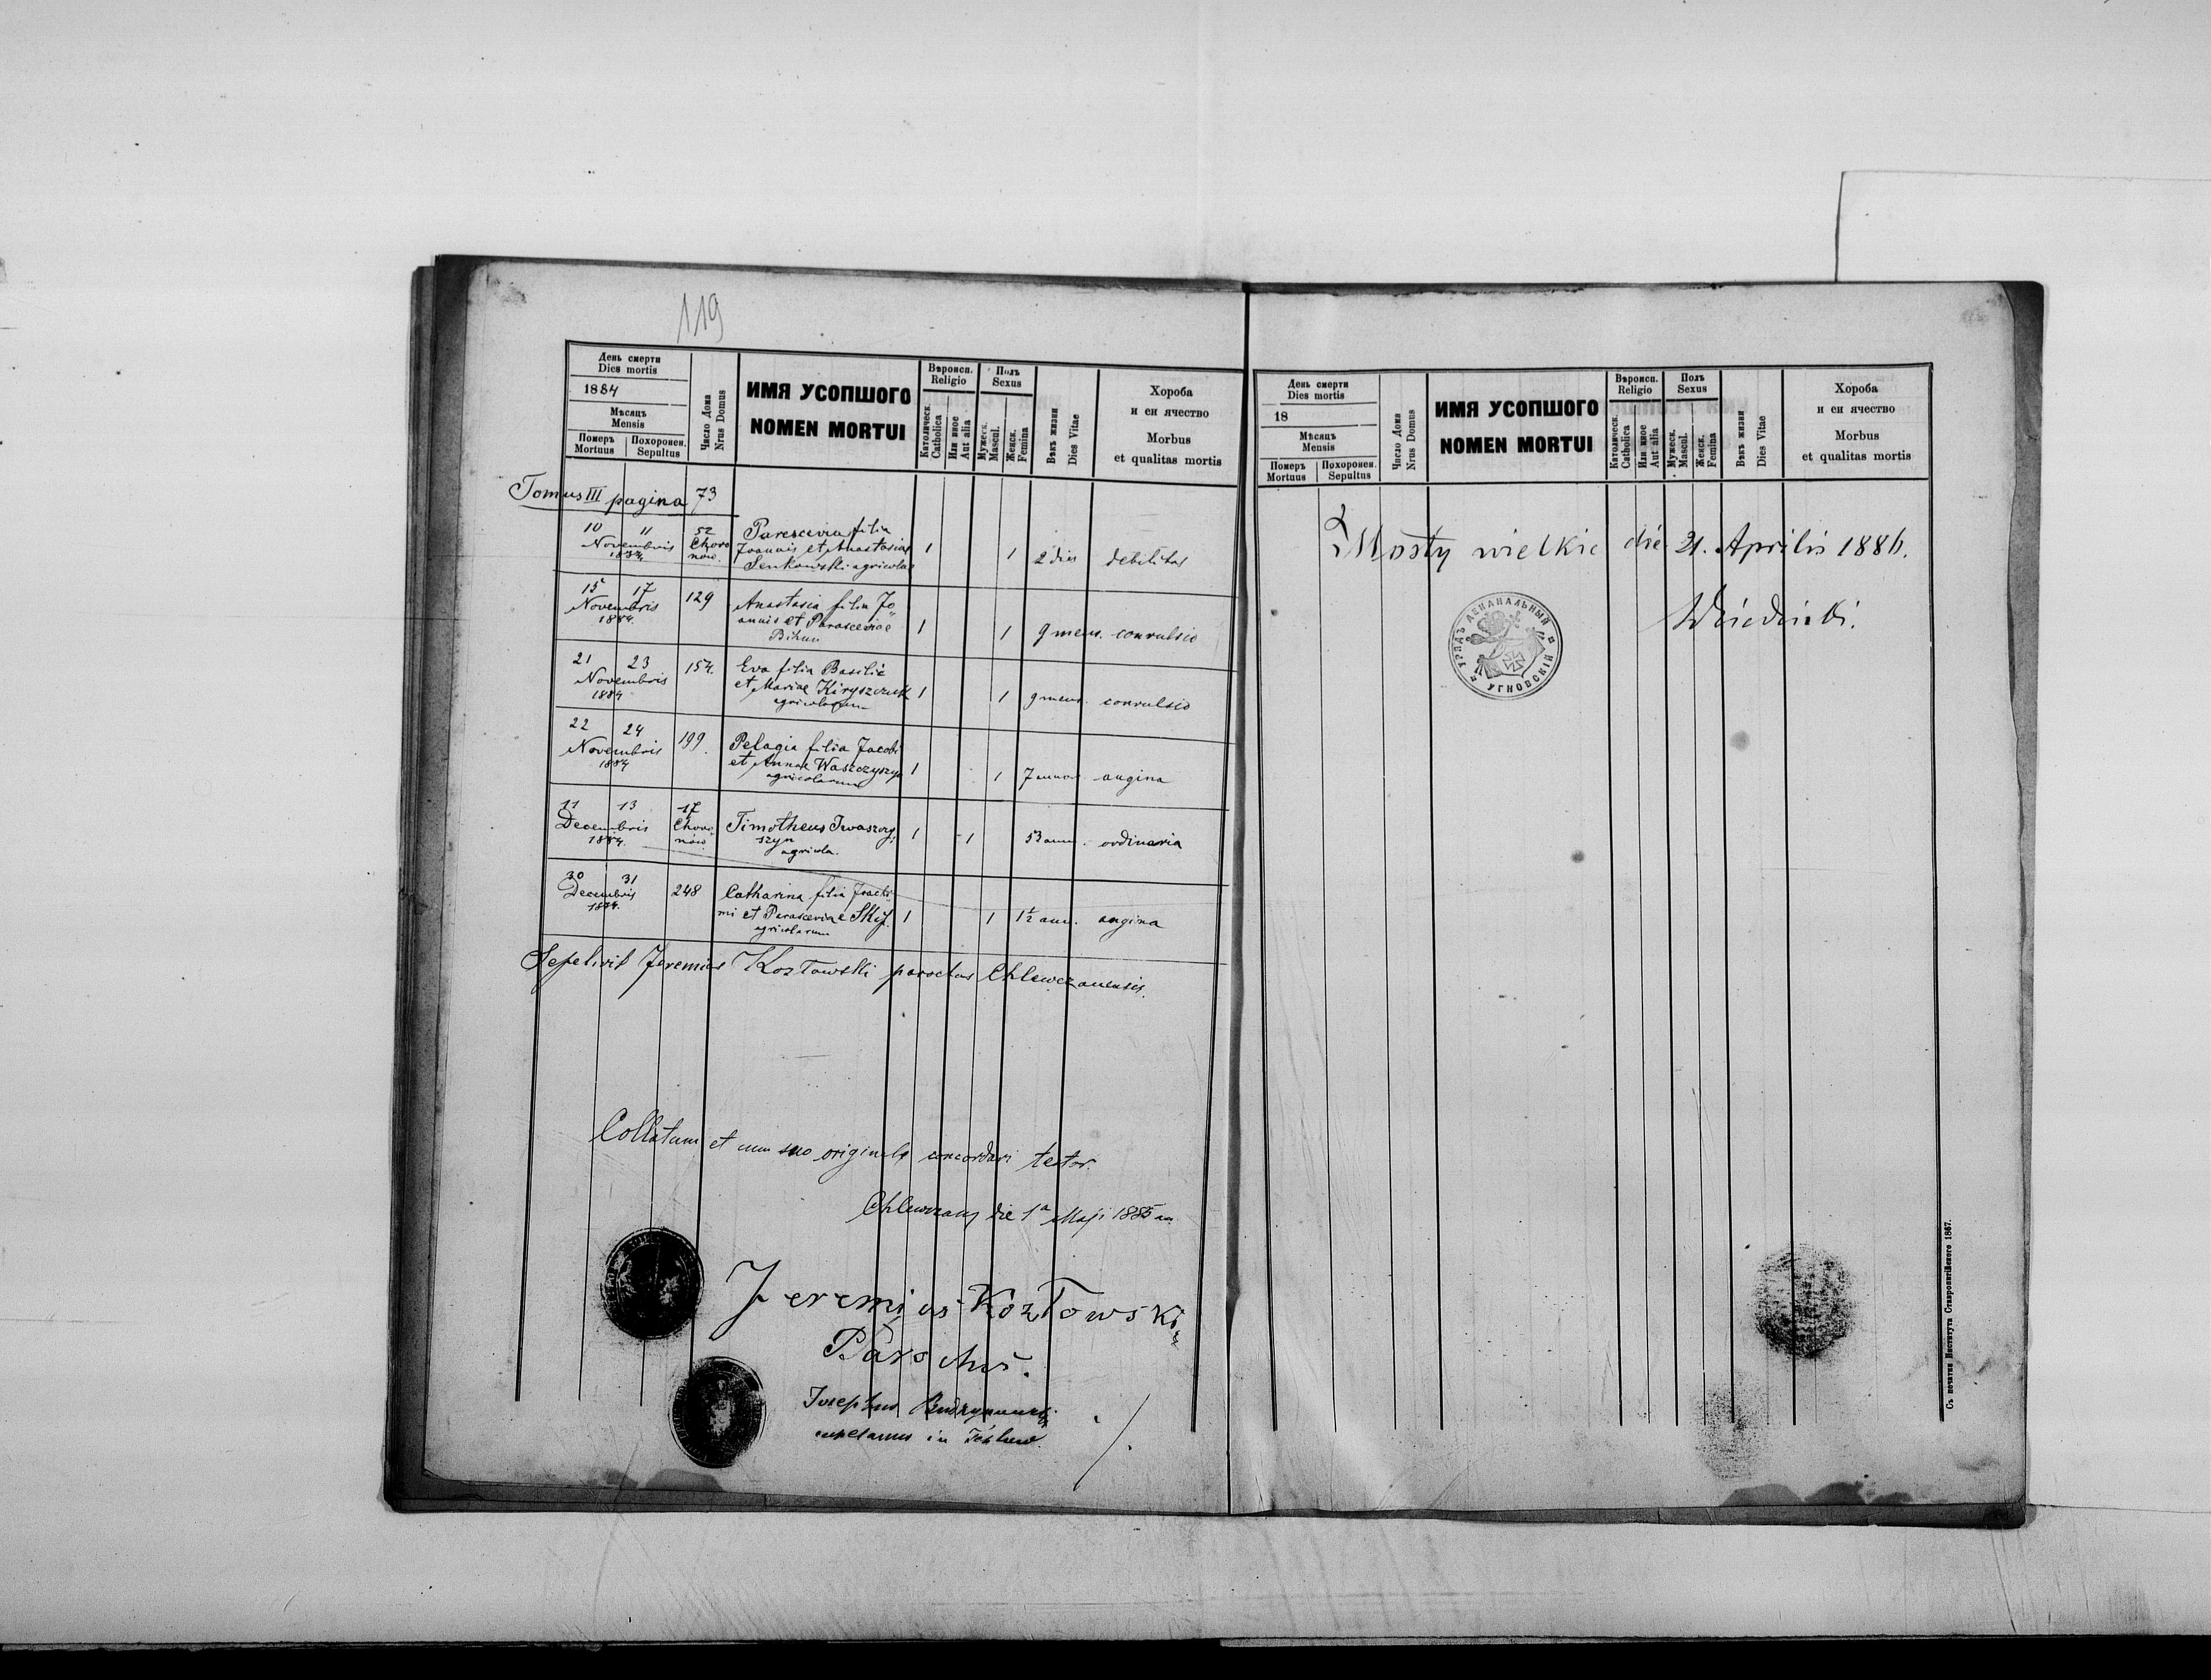 119
День смерти
Dies mortis
1884
Мѣсяць
Mensis
Померъ Похоронен.
Mortuus Sepultus
Число Дома
Nrus Domus
ИМЯ УСОПШОГО
NOMEN MORTUI
Вѣроисп.
Religio
Католическ.
Catholica
Или иное
Aut alia
Полъ
Sexus
Мужеск.
Mascul.
Женск.
Femina
Вѣкъ жизни
Dies Vitae
Хороба
и еи ячество
Morbus
et qualitas mortis
Tomus III pagina 73
10 11 52 Parascevia filia
Novembris Choro Joannis et Anastasiae 1 1 2 dies debilitas
1884 now. Senkowski agricolae
15 17 129 Anastasia filia Jo
Novembris annis et Parasceviae 1 1 9 mens. convulsio
1884. Bihun
21 23 154. Eva filia Basilii
Novembris et Mariae Kiryszczuk 1 1 9 mens. convulsio
1884 agricolarum
22 24 199. Pelagia filia Jacobi
Novembris et Annae Waszczyszyn 1 1 7 annor angina
1884 agricolarum
11 13 17 Timotheus Iwaszczy
Decembris Choro szyn 1 1 53 ann. ordinaria
1884. nów agricola.
30 31 248 Catharina filia Joachi
Decembris mi et Parasceviae Skif. 1 1 1½ ann. angina
1884. agricolarum
Sepelivit Jeremias Kozłowski parochus Chlewczanensis.
Collatum et cum suo originale concordari testor.
Chlewczany die 1ª Maji 1885
Jeremias Kozłowski
Parochus.
Josephus
in
День смерти
Dies mortis
18
Мѣсяць
Mensis
Померъ Похоронен.
Mortuus Sepultus
Число Дома
Nrus Domus
ИМЯ УСОПШОГО
NOMEN MORTUI
Вѣроисп.
Religio
Католическ.
Catholica
Или иное
Aut alia
Полъ
Sexus
Мужеск.
Mascul.
Женск.
Femina
Вѣкъ жизни
Dies Vitae
Хороба
и еи ячество
Morbus
et qualitas mortis
Mosty wielkie die 21. Aprilis 1886.
УРЯДЪ ДЕКАНАЛЬНЫЙ
УГНОВСКІЙ
Съ печатни Института Ставропигійского 1867.